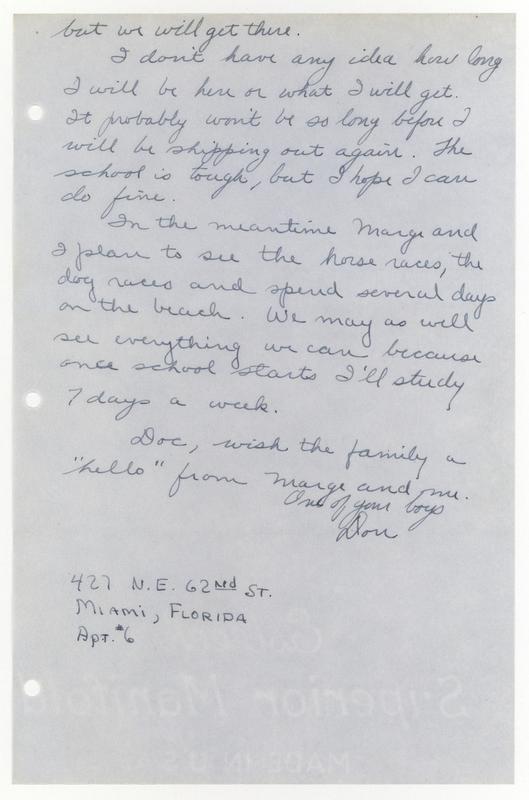 but we will get there.
I don't have any idea how long
I will be here or what I will get.
It probably won't be so long before I
will be shipping out again. The
school is tough, but I hope I can
do fine.
In the meantime Marge and
I plan to see the horse races, the
dog races and spend several days
on the beach. We may as well
see everything we can because
once school starts I'll study
7 days a week.
Doc, wish the family a
"hello" from Marge and me.
One of your boys
Don
427 N.E. 62nd St.
Miami, Florida
Apt. #6
Superior Manifold
MADE IN U.S.A.